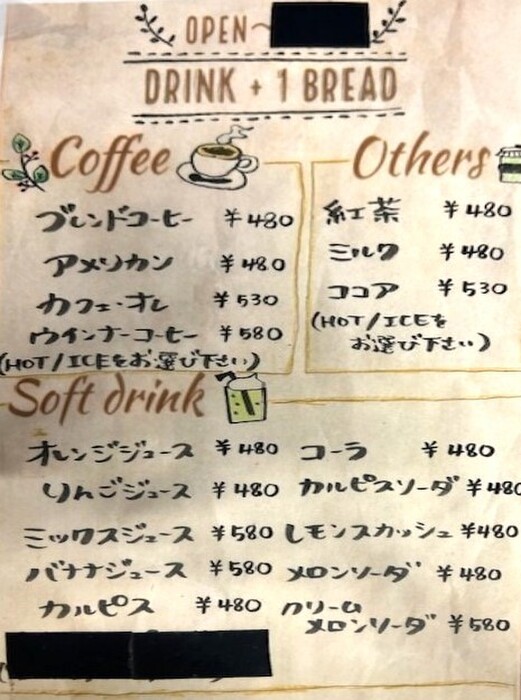 OPEN~
DRINK + 1 BREAD
Coffee
ブレンドコーヒー ¥480
アメリカン ¥480
カフェ・オレ ¥530
ウインナーコーヒー ¥580
(HOT/ICEをお選び下さい)
Others
紅茶 ¥480
ミルク ¥480
ココア ¥530
(HOT/ICEを
お選び下さい)
Soft drink
オレンジジュース ¥480
りんごジュース ¥480
ミックスジュース ¥580
バナナジュース ¥580
カルピス ¥480
コーラ ¥480
カルピスソーダ ¥480
レモンスカッシュ ¥480
メロンソーダ ¥480
クリーム
メロンソーダ ¥580